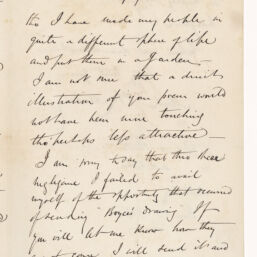 tho' I have made my people in
quite a different sphere of life
and put them in a Garden.
I am not sure that a direct
illustration of your poem would
not have been more touching
tho' perhaps less attractive —
I am sorry to say that thro' sheer
negligence I failed to avail
myself of the opportunity that occurred
of sending Boyce's drawing. If
you will let me know how they
come I will send it and